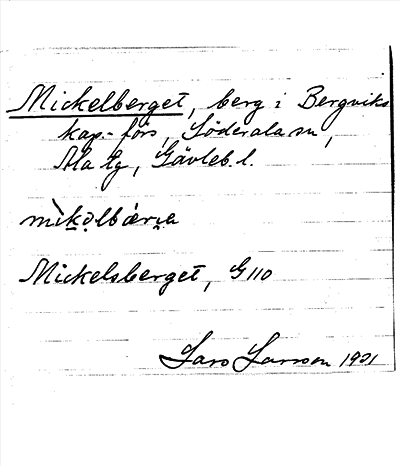 Mickelberget, berg i Bergviks
kap.-förs, Söderala sn,
Ala tg, Gävleb. l.
mìkolbær̥a
Mickelsberget, G 110
Lars Larsson 1931